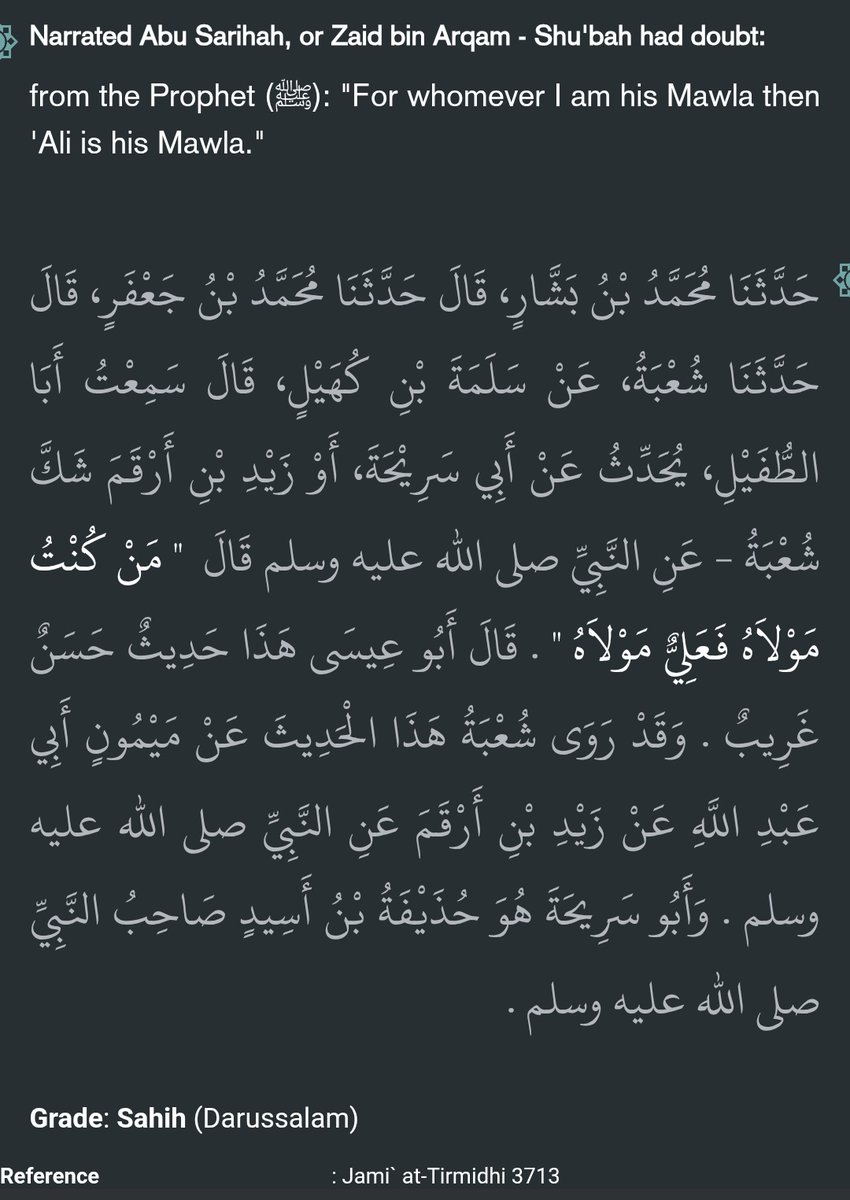 Narrated Abu Sarihah, or Zaid bin Arqam - Shu'bah had doubt:
from the Prophet (ﷺ): "For whomever I am his Mawla then
'Ali is his Mawla."
حَدَّثَنَا مُحَمَّدُ بْنُ بَشَّارٍ، قَالَ حَدَّثَنَا مُحَمَّدُ بْنُ جَعْفَرٍ، قَالَ
حَدَّثَنَا شُعْبَةُ، عَنْ سَلَمَةَ بْنِ كُهَيْلٍ، قَالَ سَمِعْتُ أَبَا
الطُّفَيْلِ، يُحَدِّثُ عَنْ أَبِي سَرِيْحَةَ، أَوْ زَيْدِ بْنِ أَرْقَمَ شَكَّ
شُعْبَةُ – عَنِ النَّبِيِّ صلى الله عليه وسلم قَالَ ‏"‏ مَنْ كُنْتُ
مَوْلاَهُ فَعَلِيٌّ مَوْلاَهُ ‏"‏ ‏.‏ قَالَ أَبُو عِيسَى هَذَا حَدِيثٌ حَسَنٌ
غَرِيبٌ ‏.‏ وَقَدْ رَوَى شُعْبَةُ هَذَا الْحَدِيثَ عَنْ مَيْمُونٍ أَبِي
عَبْدِ اللَّهِ عَنْ زَيْدِ بْنِ أَرْقَمَ عَنِ النَّبِيِّ صلى الله عليه
وسلم ‏.‏ وَأَبُو سَرِيحَةَ هُوَ حُذَيْفَةُ بْنُ أَسِيدٍ صَاحِبُ النَّبِيِّ
صلى الله عليه وسلم ‏.‏
Grade: Sahih (Darussalam)
Reference : Jami` at-Tirmidhi 3713